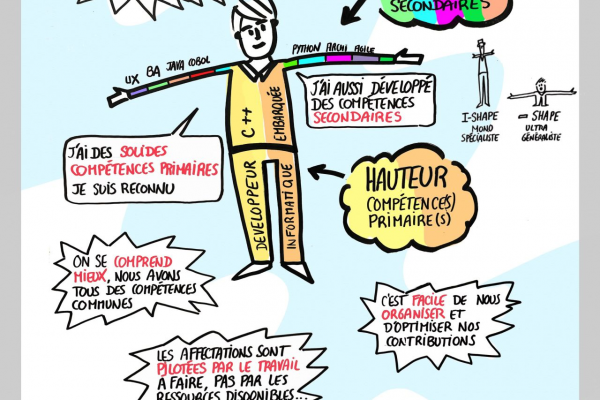 SECONDAIRES
UX BA JAVA COBOL
PYTHON ARCHI AGILE
C++
EMBARQUÉE
J'AI AUSSI DÉVELOPPÉ
DES COMPÉTENCES
SECONDAIRES
I-SHAPE
MONO
SPÉCIALISTE
- SHAPE
ULTRA
GÉNÉRALISTE
J'AI DES SOLIDES
COMPÉTENCES PRIMAIRES
JE SUIS RECONNU
DÉVELOPPEUR
INFORMATIQUE
HAUTEUR
(OMPÉTENCE(S)
PRIMAIRE(S)
ON SE COMPREND
MIEUX, NOUS AVONS
TOUS DES COMPÉTENCES
COMMUNES
C'EST FACILE DE NOUS
ORGANISER ET
D'OPTIMISER NOS
CONTRIBUTIONS
LES AFFECTATIONS SONT
PILOTÉES PAR LE TRAVAIL
À FAIRE, PAS PAR LES
RESSOURCES DISPONIBLES...